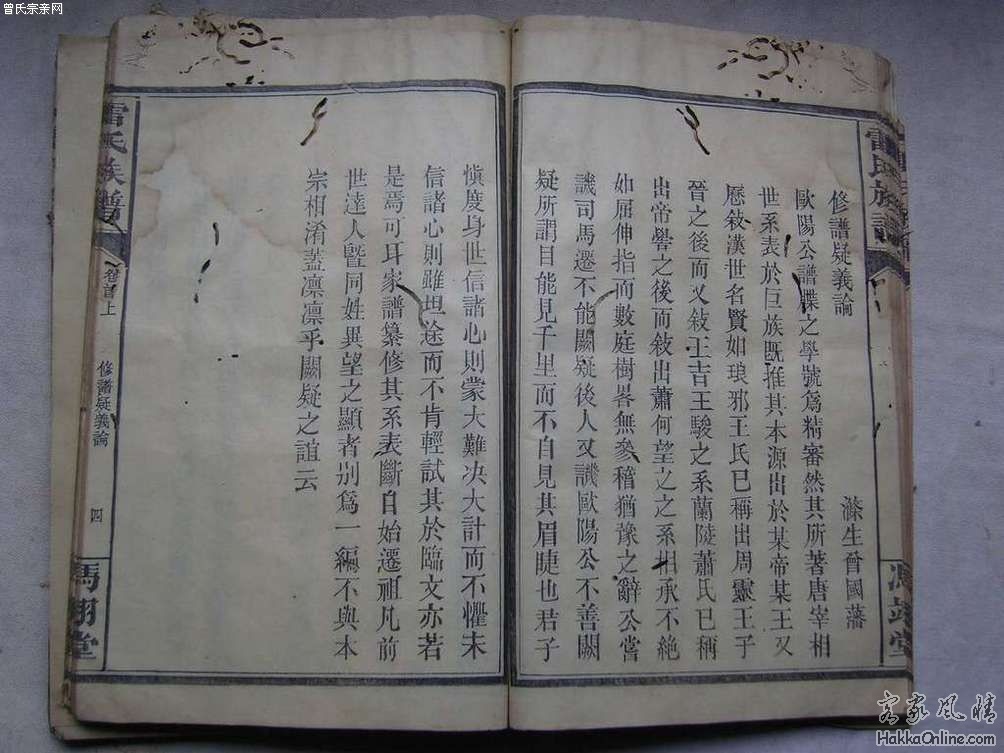 曾氏宗亲网
雷氏族譜
馮翊堂
修譜疑義論
滌生曾國藩
歐陽公譜牒之學號爲精審然其所著唐宰相
世系表於巨族旣推其本源出於某帝某王又
歷敍漢世名賢如琅邪王氏巳稱出周靈王子
晉之後而又敍王吉王駿之系蘭陵蕭氏巳稱
出帝嚳之後而敍出蕭何望之之系相承不絶
如屈伸指而數庭樹畧無參稽猶豫之辭公嘗
譏司馬遷不能闕疑後人又譏歐陽公不善闕
疑所謂目能見千里而不自見其眉睫也君子
愼度身世信諸心則蒙大難決大計而不懼未
信諸心則雖坦途而不肯輕試其於臨文亦若
是焉可耳家譜纂修其系表斷自始遷祖凡前
世達人曁同姓異望之顯者別爲一編不與本
宗相淆蓋凛凛乎闕疑之誼云
雷氏族譜
卷首上
修譜疑義論
四
馮翊堂
客家風情
HakkaOnline.com